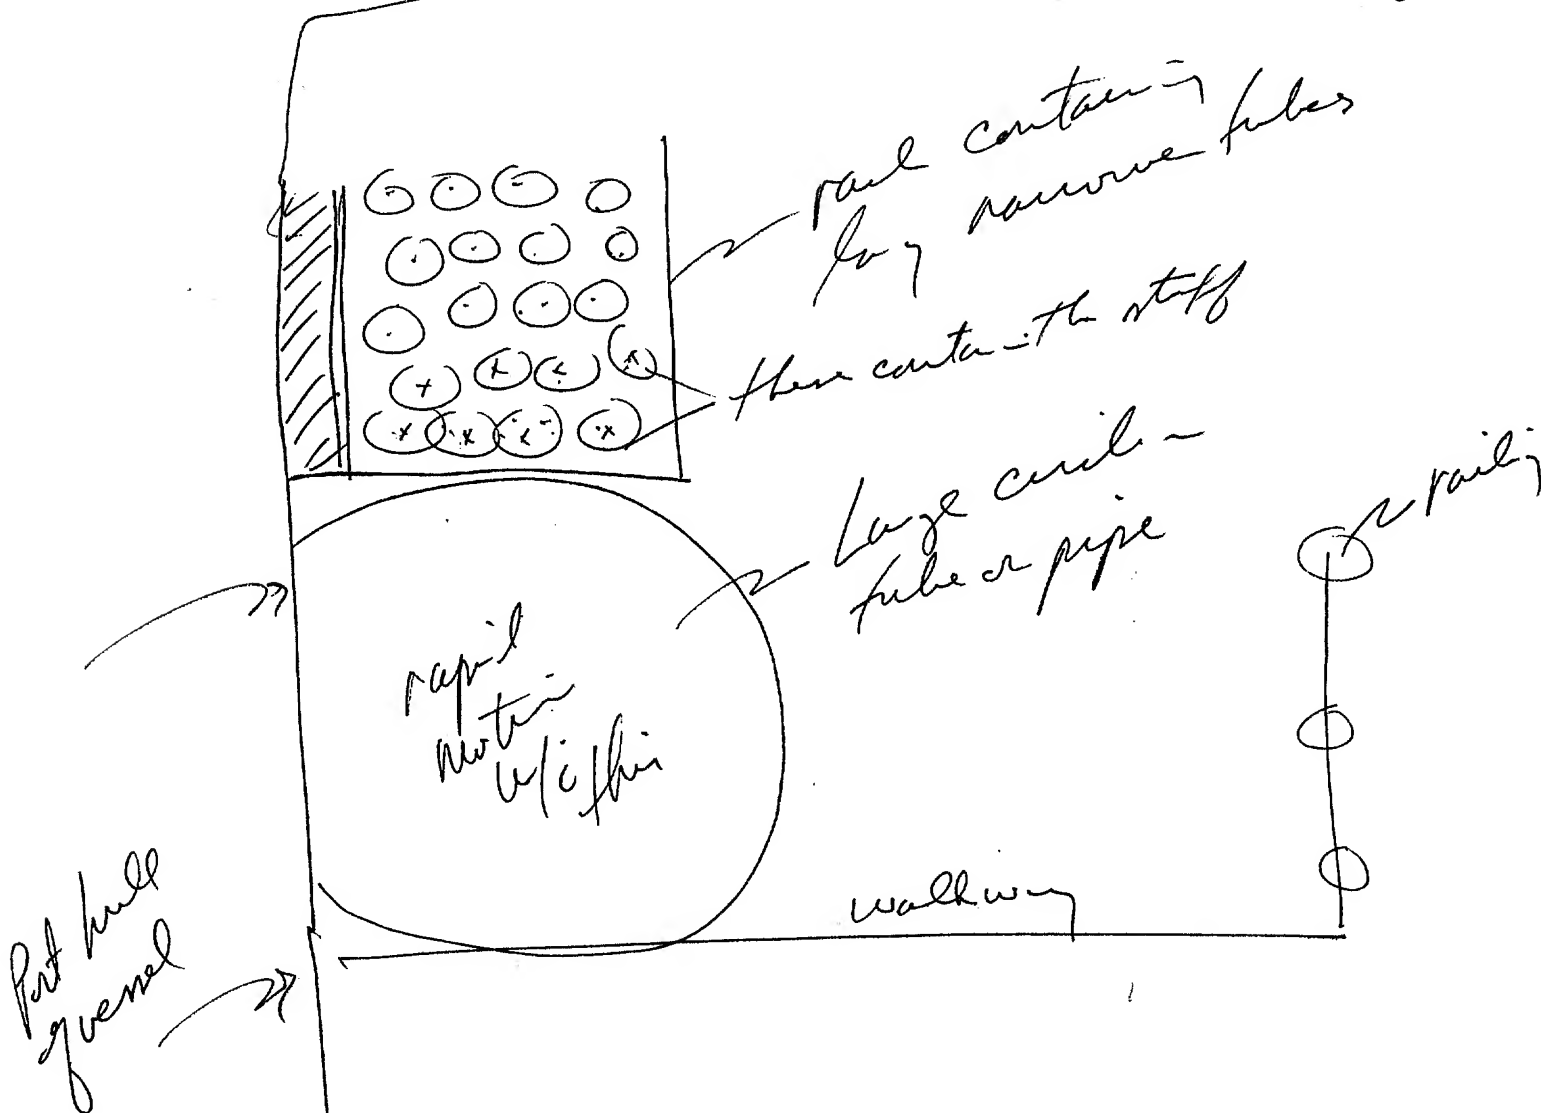 rack containing
long narrow tubes
these contain the stuff
Large circular
tube or pipe
railing
rapid
motion
w/i this
walkway
Port hull
of vessel